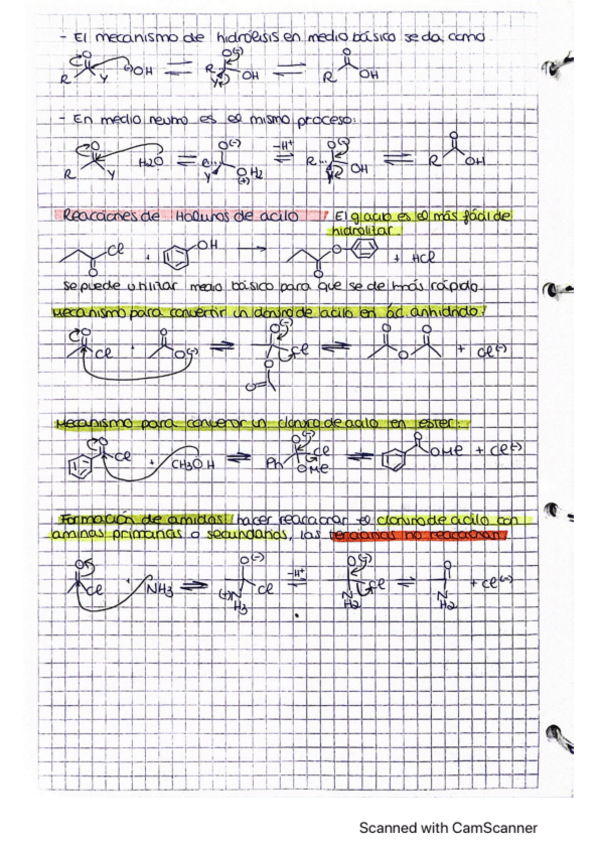 - El mecanismo de hidrólisis en medio básico se da como
R Y (-)OH R Y O(-) OH R O OH
- En medio neutro es el mismo proceso:
R Y O H2O O(-) Y O(+)H2 -H+ R O(-) OH R O OH
Reacciones de Haluros de acilo / El g acilo es el más fácil de
hidrolizar.
Cl O + OH O O + HCl
se puede utilizar medio básico para que se de más rápido.
Mecanismo para convertir un cloruro de acilo en ác. anhidrido:
O Cl + O O(-) O(-) Cl O O O O O + Cl(-)
Mecanismo para convertir un cloruro de acilo en ester:
O Cl + CH3OH Ph O(-) Cl OMe O OMe + Cl(-)
Formación de amidas / hacer reaccionar el cloruro de acilo con
aminas primarias o secundarias, las terciarias no reaccionan
O Cl + NH3 O(-) Cl (+)N H3 -H+ O(-) Cl N H2 O N H2 + Cl(-)
Scanned with CamScanner